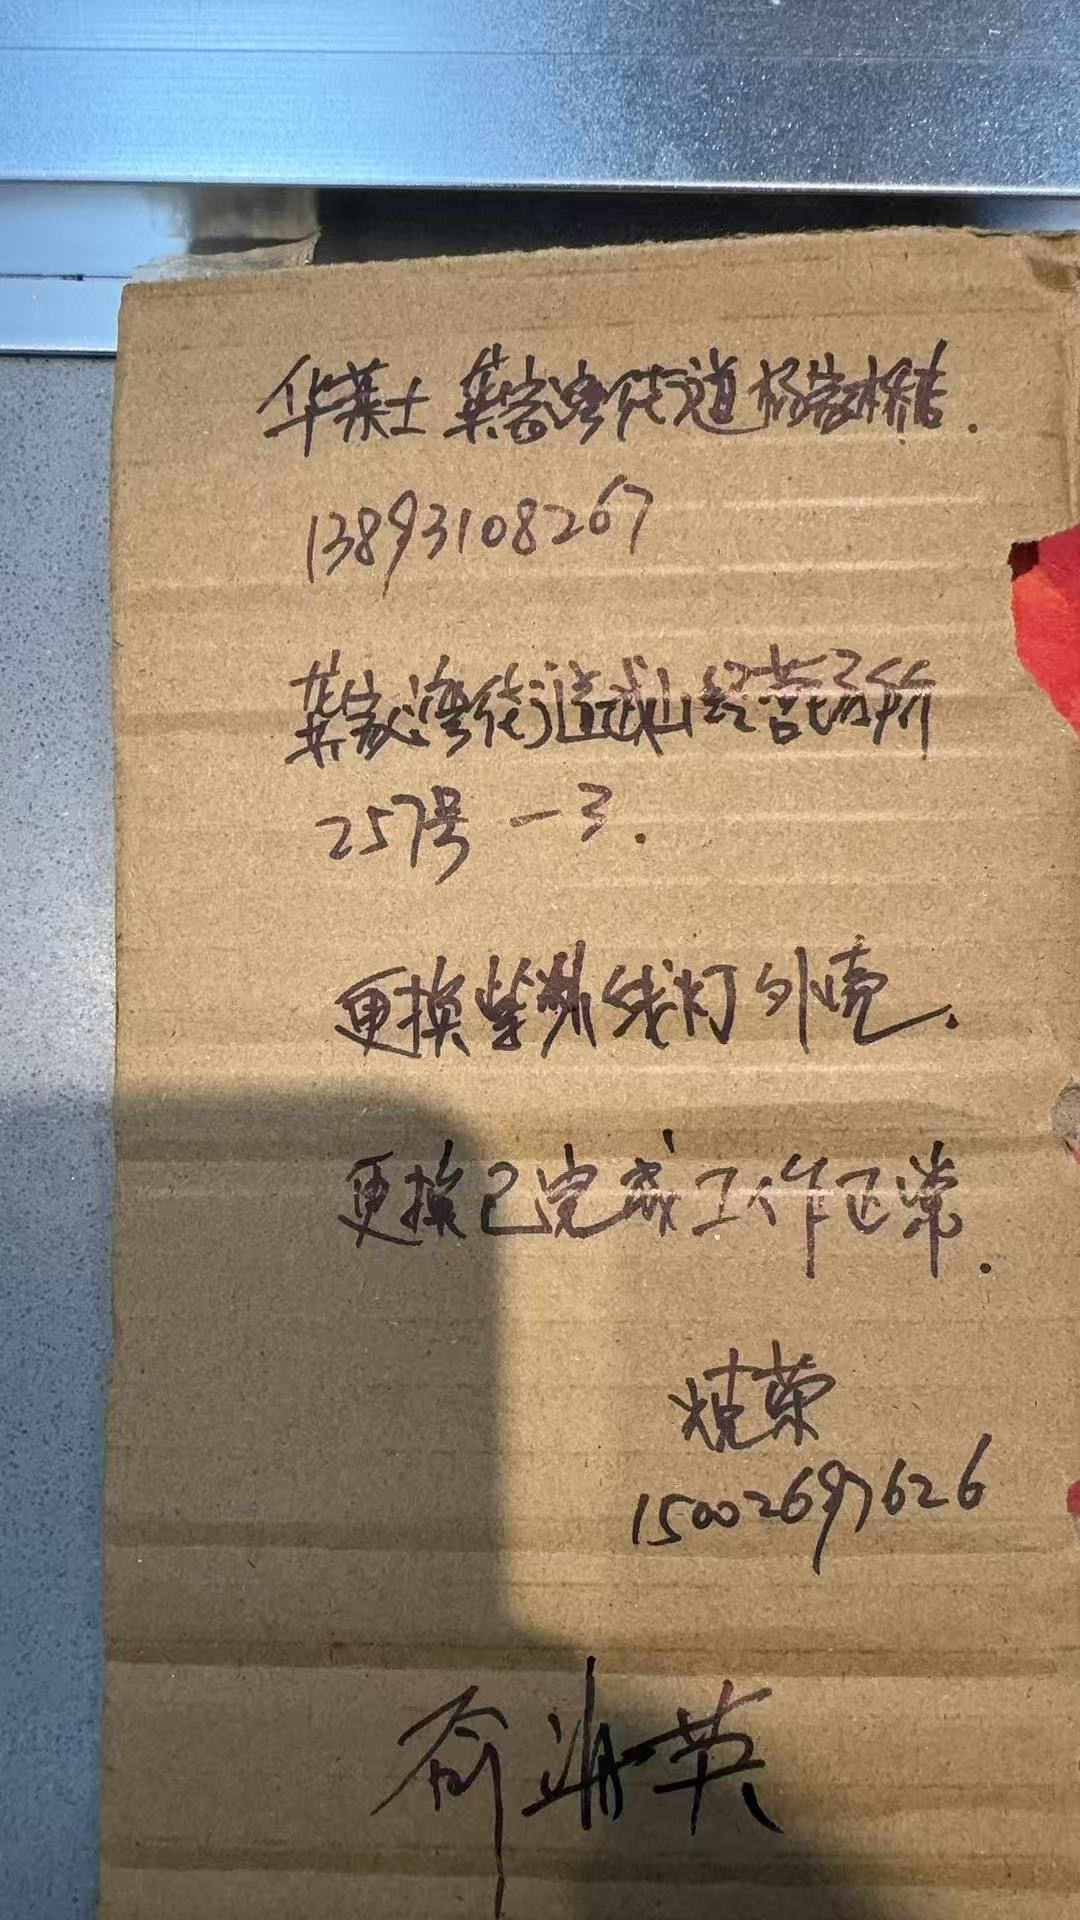 华莱士 龚家湾街道杨家桥店.
13893108267
龚家湾街道武山经营场所
257号 一3.
更换紫外线灯外壳.
更换已完成工作正常.
荣
15002697626
俞 英